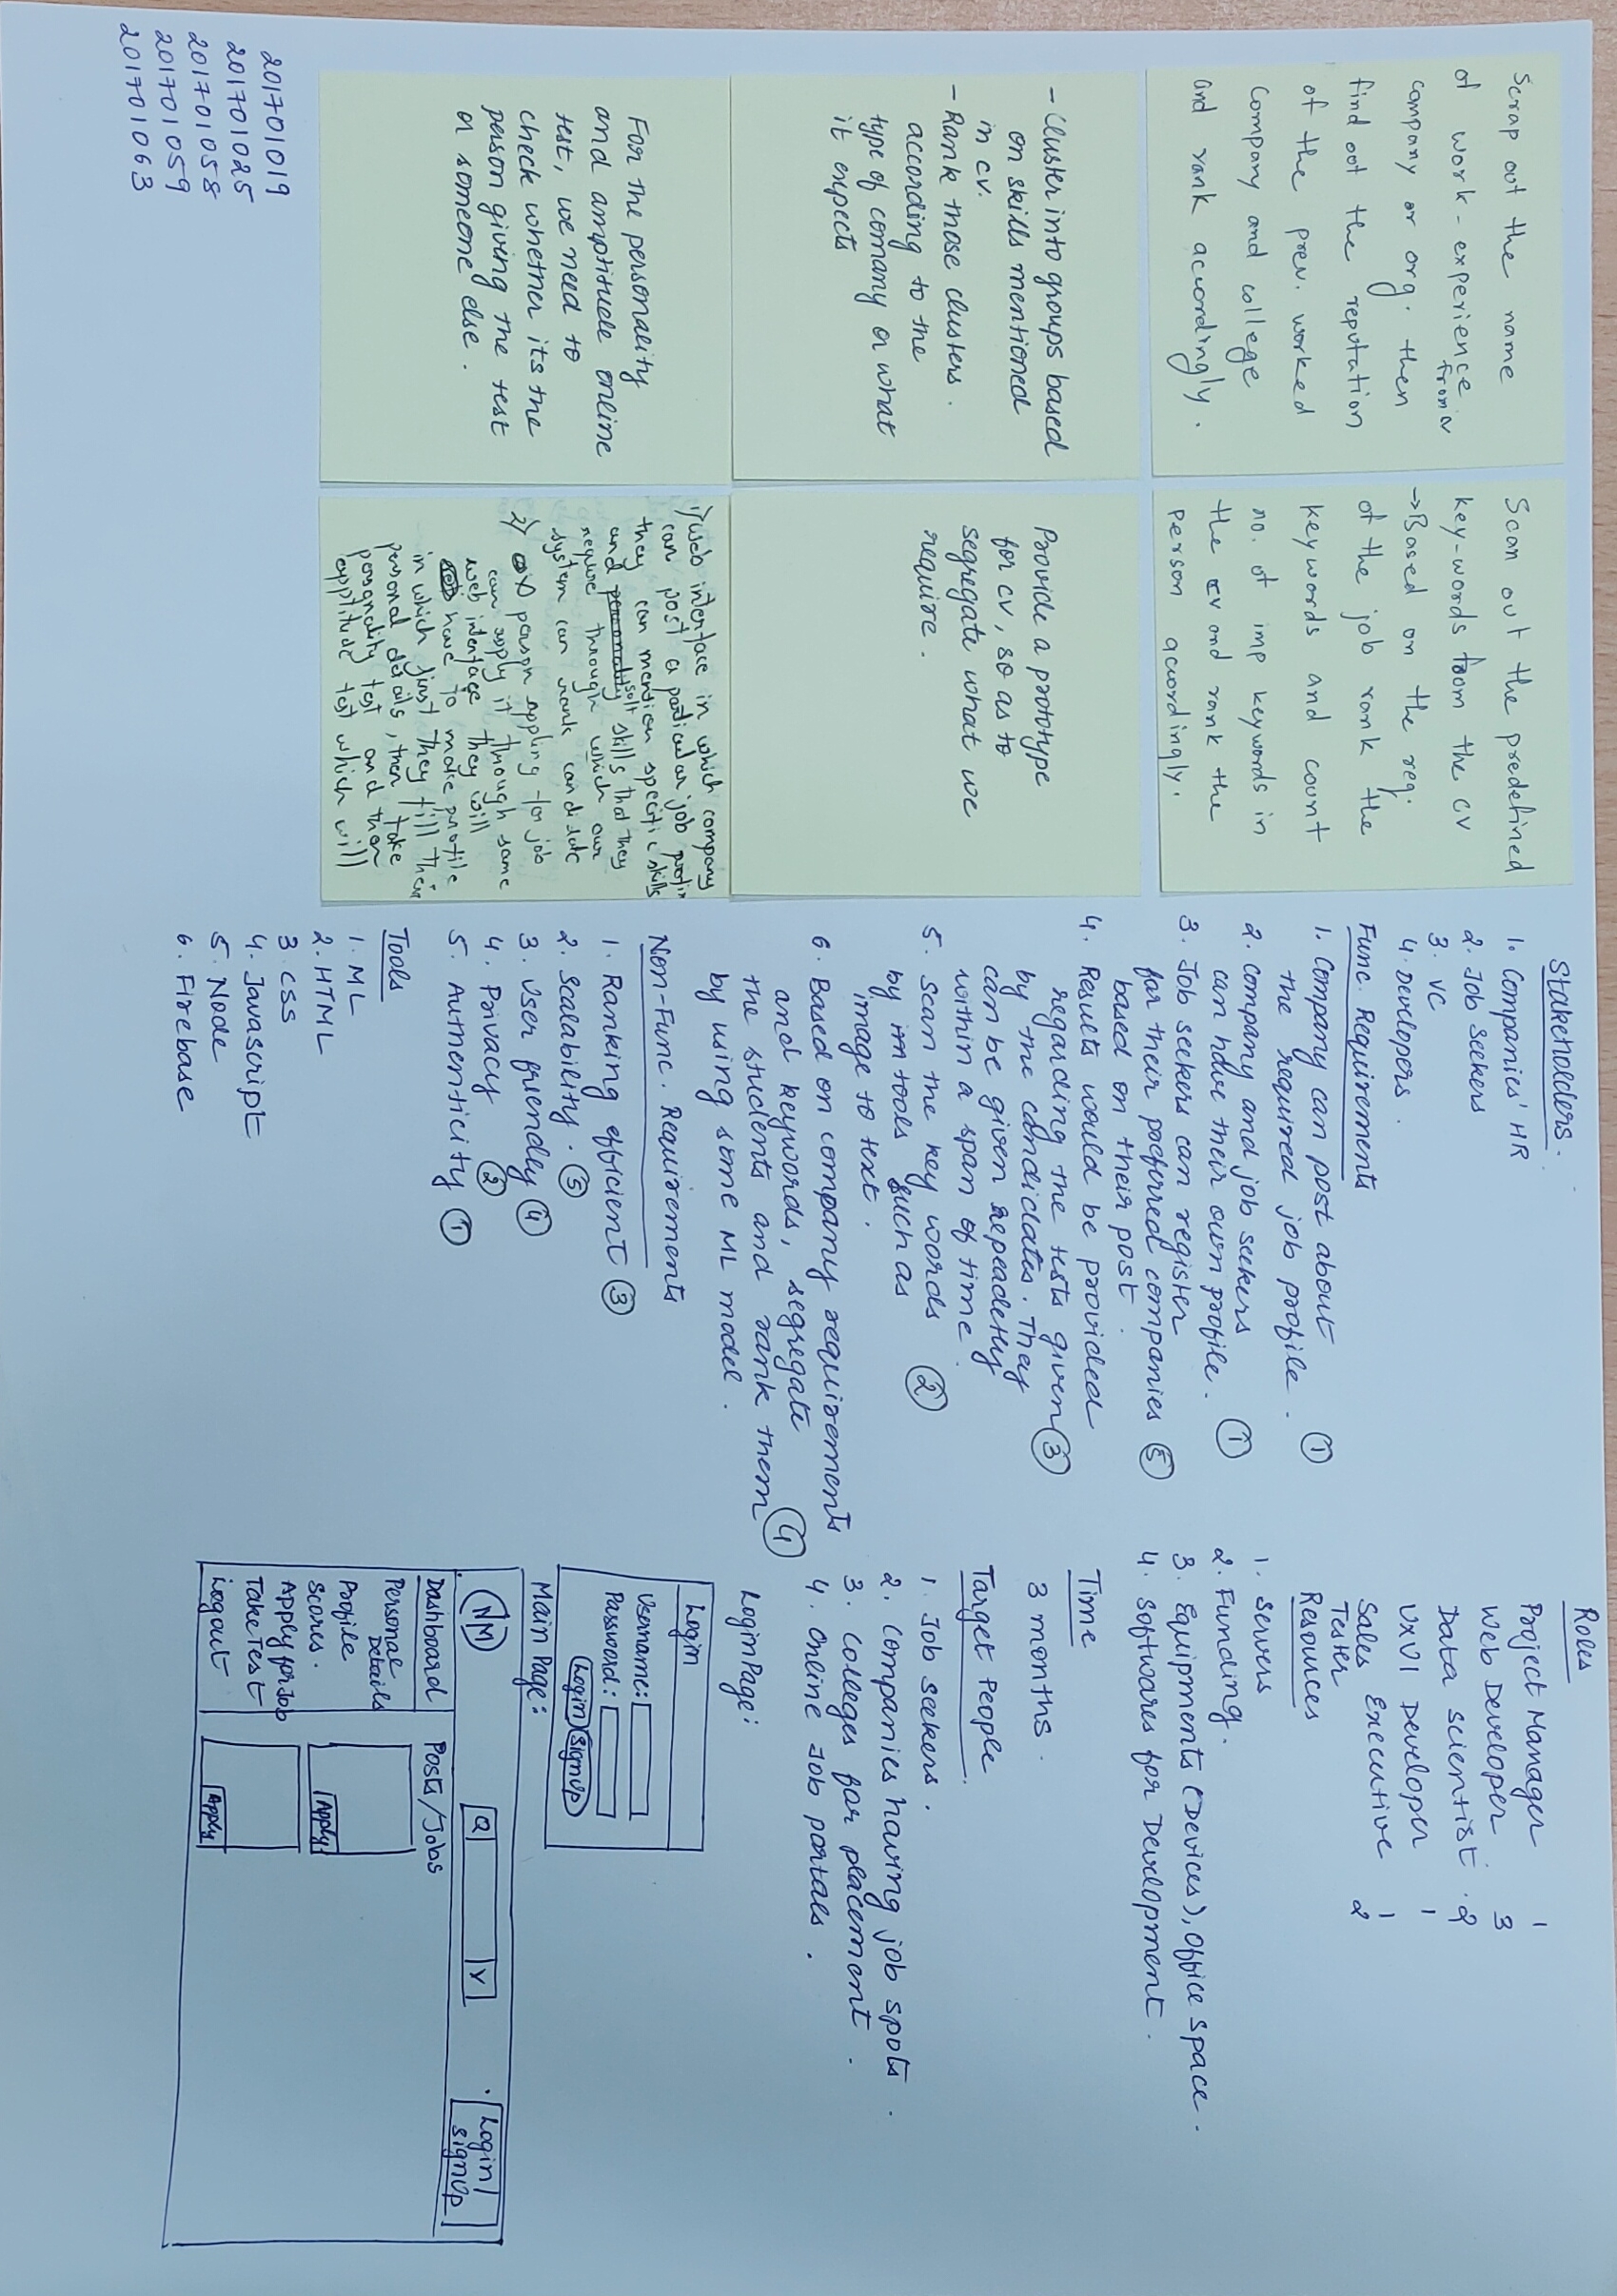 Scrap out the name
of work-experience
from
company or org. then
find out the reputation
of the prev. worked
company and college
and rank accordingly.
Scan out the predefined
key-words from the CV
→ Based on the req.
of the job rank the
keywords and count
no. of imp keywords in
the cv and rank the
person acordingly.
- Cluster into groups based
on skills mentioned
in cv.
- Rank those clusters
according to the
type of company or what
it expects
Provide a prototype
for cv, so as to
segregate what we
require.
For the personality
and amptitude online
test, we need to
check whether its the
person giving the test
or someone else.
1) web interface in which company
can post a particular job
they can mention specific skills
and soft skills that they
require through which our
system can rank candidate
2) person appling to job
can apply it through same
web interface they will
have to make profile
in which first they fill their
personal details, then take
personality test and then
apptitude test which will
201701019
201701025
201701058
201701059
201701063
Stakeholders.
1. Companies' HR
2. Job Seekers
3. VC
4. Developers.
Func. Requirements
1. Company can post about
the required job profile. ①
2. company and job seekers
can have their own profile. ①
3. Job seekers can register
for their preferred companies ⑤
based on their post.
4. Results would be provided
regarding the tests given ③
by the candidates. They
can be given repeadetly
within a span of time.
5. Scan the key words ②
by in tools such as
image to text.
6. Based on company requirements
and keywords, segregate
the students and rank them ④
by using some ML model.
Non-Func. Requirements
1. Ranking efficient ③
2. Scalability. ⑤
3. User friendly ④
4. Privacy ②
5. Authenticity ①
Tools
1. ML
2. HTML
3. CSS
4. Javascript
5. Node
6. Firebase
Roles
Project Manager 1
Web Developer 3
Data scientist. 2
UXUI Developer 1
Sales Executive 1
Tester 2
Resources
1. Servers
2. Funding.
3. Equipments (Devices), office space.
4. Softwares for Development.
Time
3 months.
Target People.
1. Job seekers.
2. Companies having job spots.
3. colleges for placement.
4. Online Job portals.
Login Page:
Login
Username:
Password:
Login Signup
Main Page:
NM Q Y Login/
Signup
Dashboard Posts/Jobs
Personal
Details
Profile
Scores.
Apply for Job
Take Test
Logout
Apply
Apply